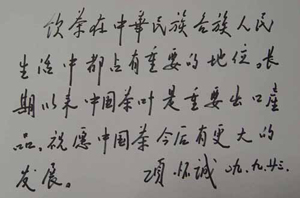 饮茶在中華民族各族人民
生活中都占有重要的地位。長
期以来中国茶叶是重要出口產
品。祝愿中国茶今后有更大的
发展。 项怀诚 九九.九.廿三.